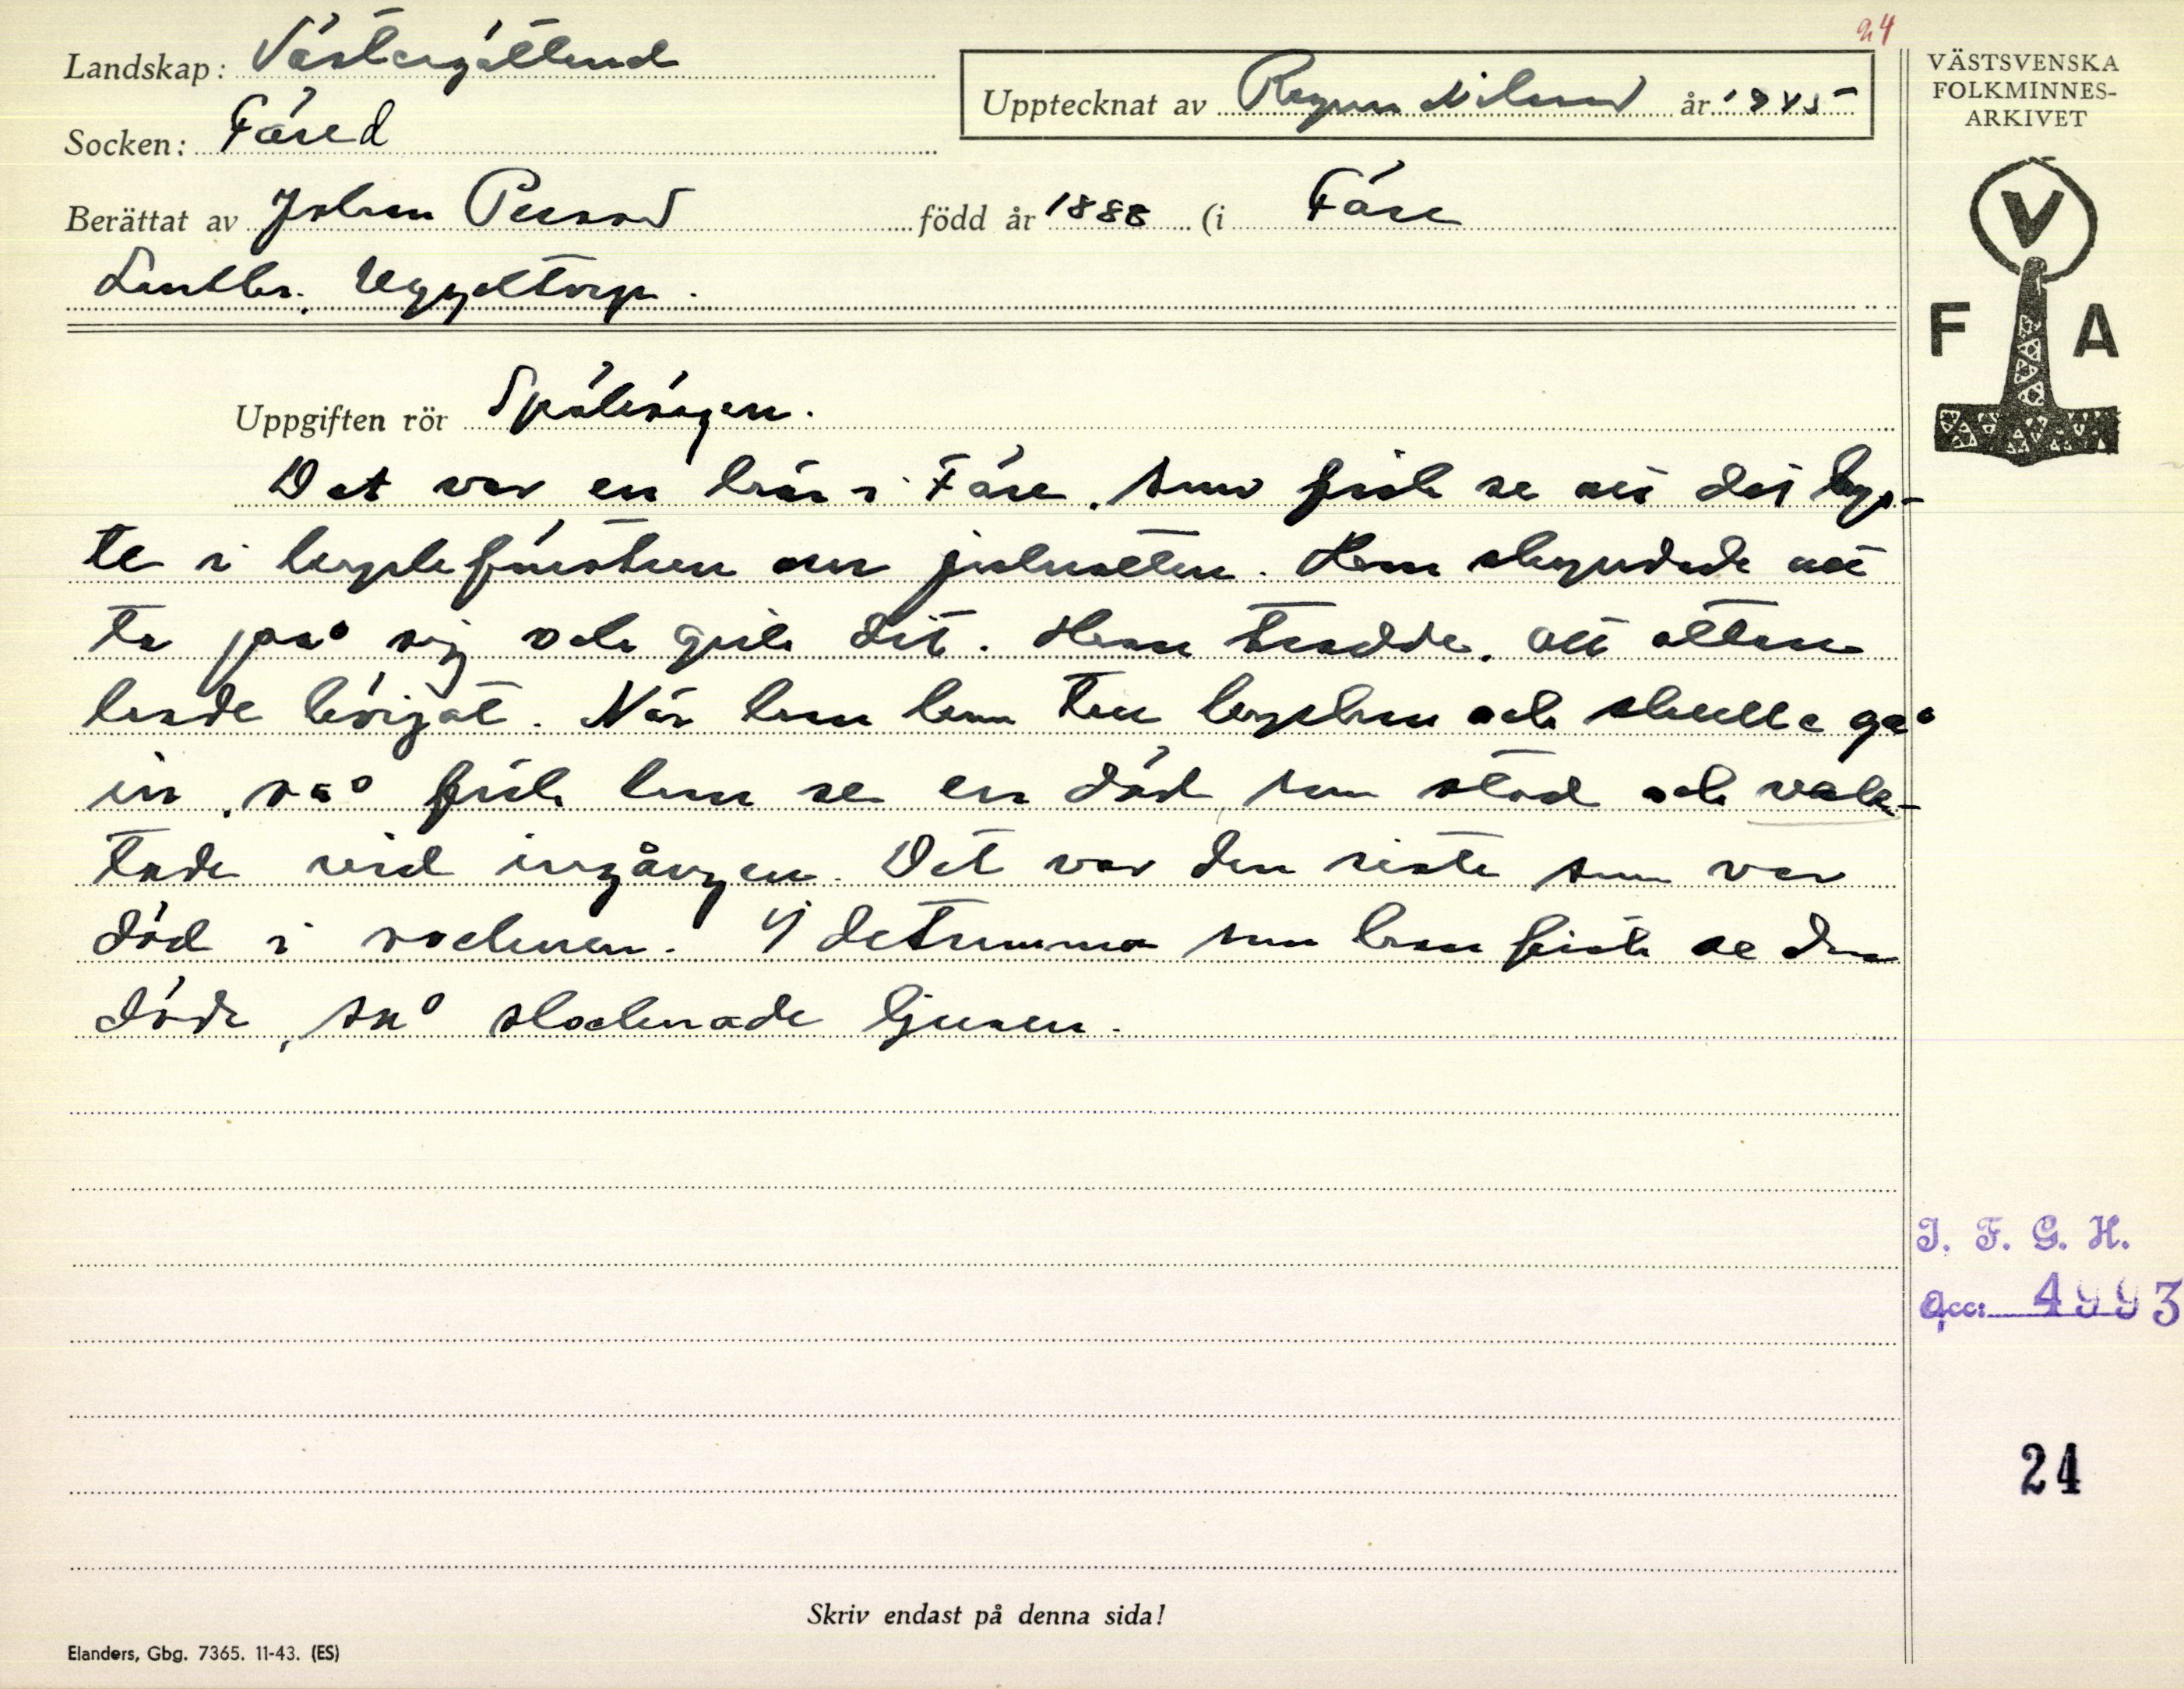 24
Landskap: Västergötland
Upptecknat av Ragnar Nilsson år 1945
VÄSTSVENSKA
FOLKMINNES-
ARKIVET
Socken: Fåred
Berättat av Johan Persson född år 1888 (i Fåre
Lantbr.
V
F A
Uppgiften rör Spöksägen.
Det var en här i Fåre, som fick se att det lys-
te i kyrkfönstren om julnatten. Han skyndade att
ta på sig och gick dit. Han trodde, att ottan
hade börjat. När han kom till kyrkan och skulle gå
in, så fick han se en död, som stod och vak-
tade vid ingången. Det var den siste som var
död i socknen. I detsamma som han fick se den
döde, så slocknade ljusen.
I. F. G. H.
acc: 4993
24
Skriv endast på denna sida!
Elanders, Gbg. 7365. 11-43. (ES)